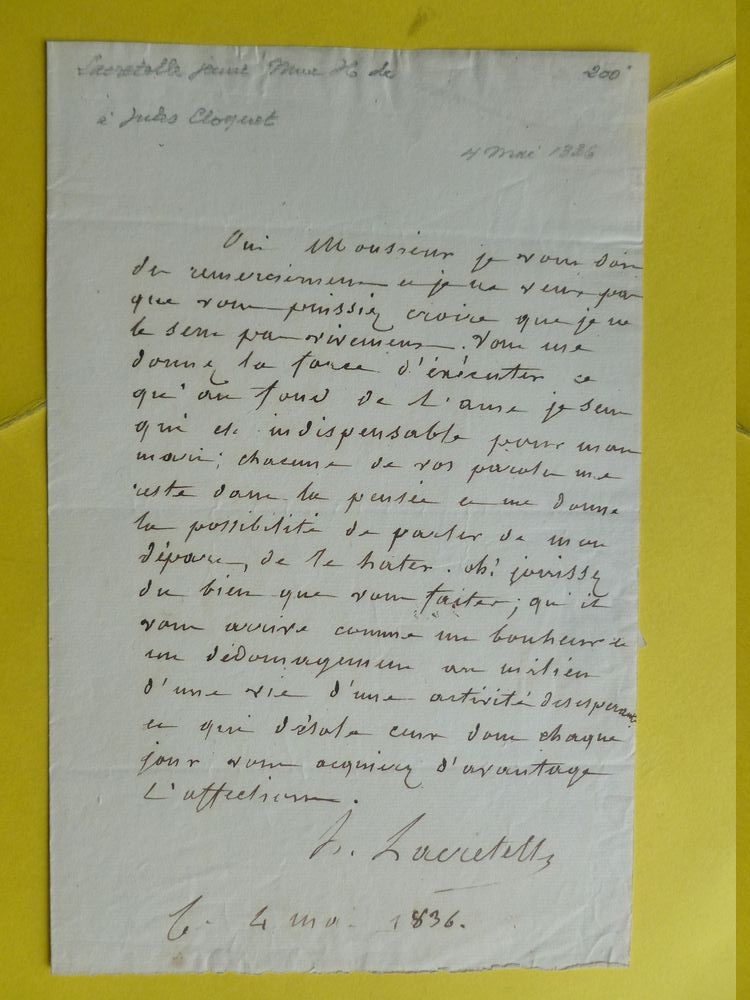 Lacretelle jeune Mme H de
200
à Jules Cloquet
4 Mai 1836
Oui Monsieur je vous dois
du remerciemens et je ne veux pas
que vous puissiez croire que je ne
le sens pas vivement. Vous me
donnez la force d'éxécuter ce
qu'au fond de l'ame je sens
qui est indispensable pour mon
mari; chacune de vos paroles me
reste dans la pensée et me donne
la possibilité de parler de mon
départ, de le hater. oh! jouissez
du bien que vous faites; qu'il
vous arrive comme un bonheur et
un dédomagement au milieu
d'une vie d'une activité desesperante
et qui désole ceux dont chaque
jour vous acquierez d'avantage
L'affection.
h. Lacretelle
4 mai 1836.